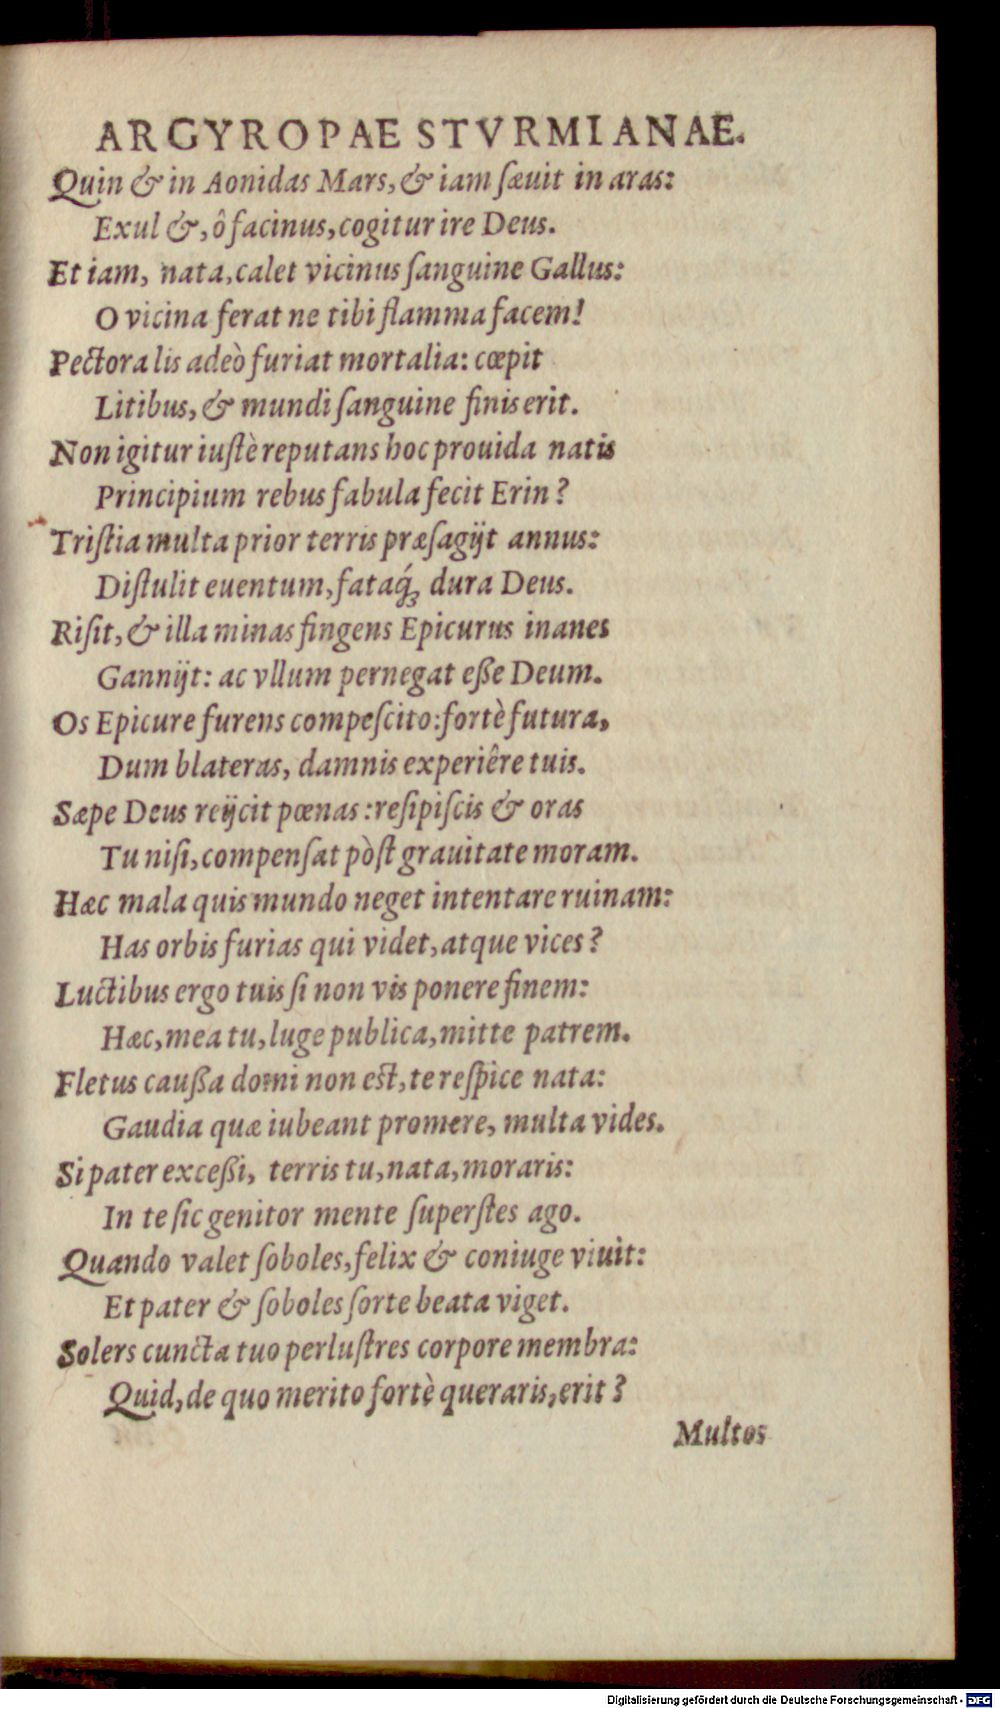 ARGYROPAE STVRMIANAE.
Quin & in Aonidas Mars, & iam ſæuit in aras:
Exul &, ô facinus, cogitur ire Deus.
Et iam, nata, calet vicinus ſanguine Gallus:
O vicina ferat ne tibi flamma facem!
Pectora lis adeò furiat mortalia: cœpit
Litibus, & mundi ſanguine finis erit.
Non igitur iuſtè reputans hoc prouida natis
Principium rebus fabula fecit Erin?
Triſtia multa prior terris præſagijt annus:
Diſtulit euentum, fataq́ꝫ dura Deus.
Riſit, & illa minas fingens Epicurus inanes
Gannijt: ac vllum pernegat eſſe Deum.
Os Epicure furens compeſcito: fortè futura,
Dum blateras, damnis experiêre tuis.
Sæpe Deus reijcit pœnas: reſipiſcis & oras
Tu niſi, compenſat pòſt grauitate moram.
Hæc mala quis mundo neget intentare ruinam:
Has orbis furias qui videt, atque vices?
Luctibus ergo tuis ſi non vis ponere finem:
Hæc, mea tu, luge publica, mitte patrem.
Fletus cauſſa domi non est, te reſpice nata:
Gaudia quæ iubeant promere, multa vides.
Si pater exceſſi, terris tu, nata, moraris:
In te ſic genitor mente ſuperſtes ago.
Quando valet ſoboles, felix & coniuge viuit:
Et pater & ſoboles ſorte beata viget.
Solers cuncta tuo perluſtres corpore membra:
Quid, de quo merito fortè queraris, erit?
Multos
Digitalisierung gefördert durch die Deutsche Forschungsgemeinschaft - DFG